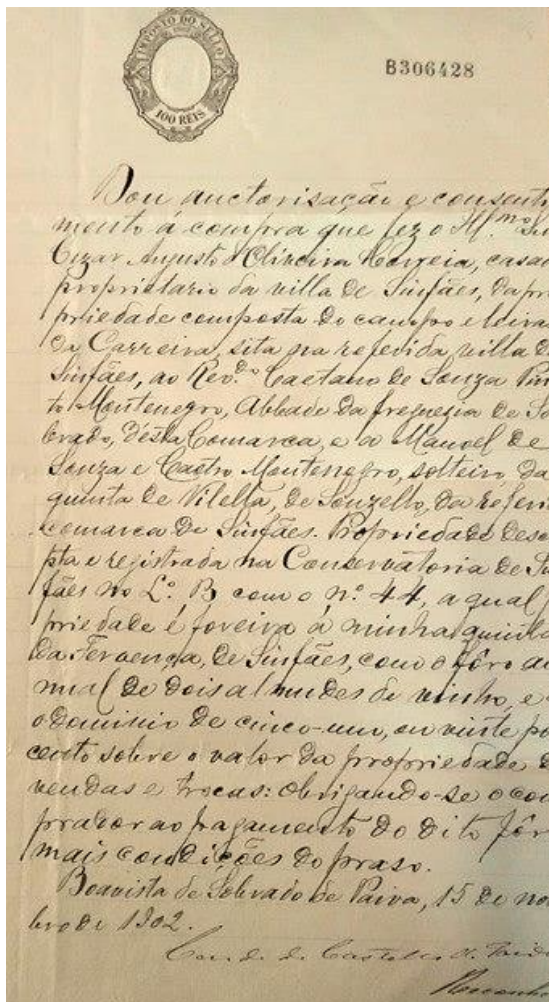 IMPOSTO DO SELLO
100 REIS
B306428
Dou auctorisação e consenti
mento á compra que fez o Il.mo Snr
Cezar Augusto d'Oliveira Correia, casad
proprietario da villa de Sinfães, da pro
priedade composta do campo e leira
da Carreira, sita na referida villa de
Sinfães, ao Rev.do Caetano de Souza Pin
to Montenegro, Abbade da freguezia de So
brado, d'ésta Comarca, e a Manoel de
Souza e Castro Montenegro, solteiro, da
quinta de Vilella, de Souzello, da referid
comarca de Sinfães. Propriedade descri
pta e registrada na Conservatoria de Sin
fães no L.º B com o n.º 44, a qual pro
priedade é foreira á minha quinta
da Fervença, de Sinfães, com o fôro an
nual de dois almudes de vinho, e
o dominio de cinco-um, ou vinte por
cento sobre o valor da propriedade
vendas e trocas: obrigando-se o com
prador ao pagamento do dito fôro
mais condições do praso.
Boavista de Sobrado de Paiva, 15 de nov
bro de 1902.
Conde de Castello de Paiva